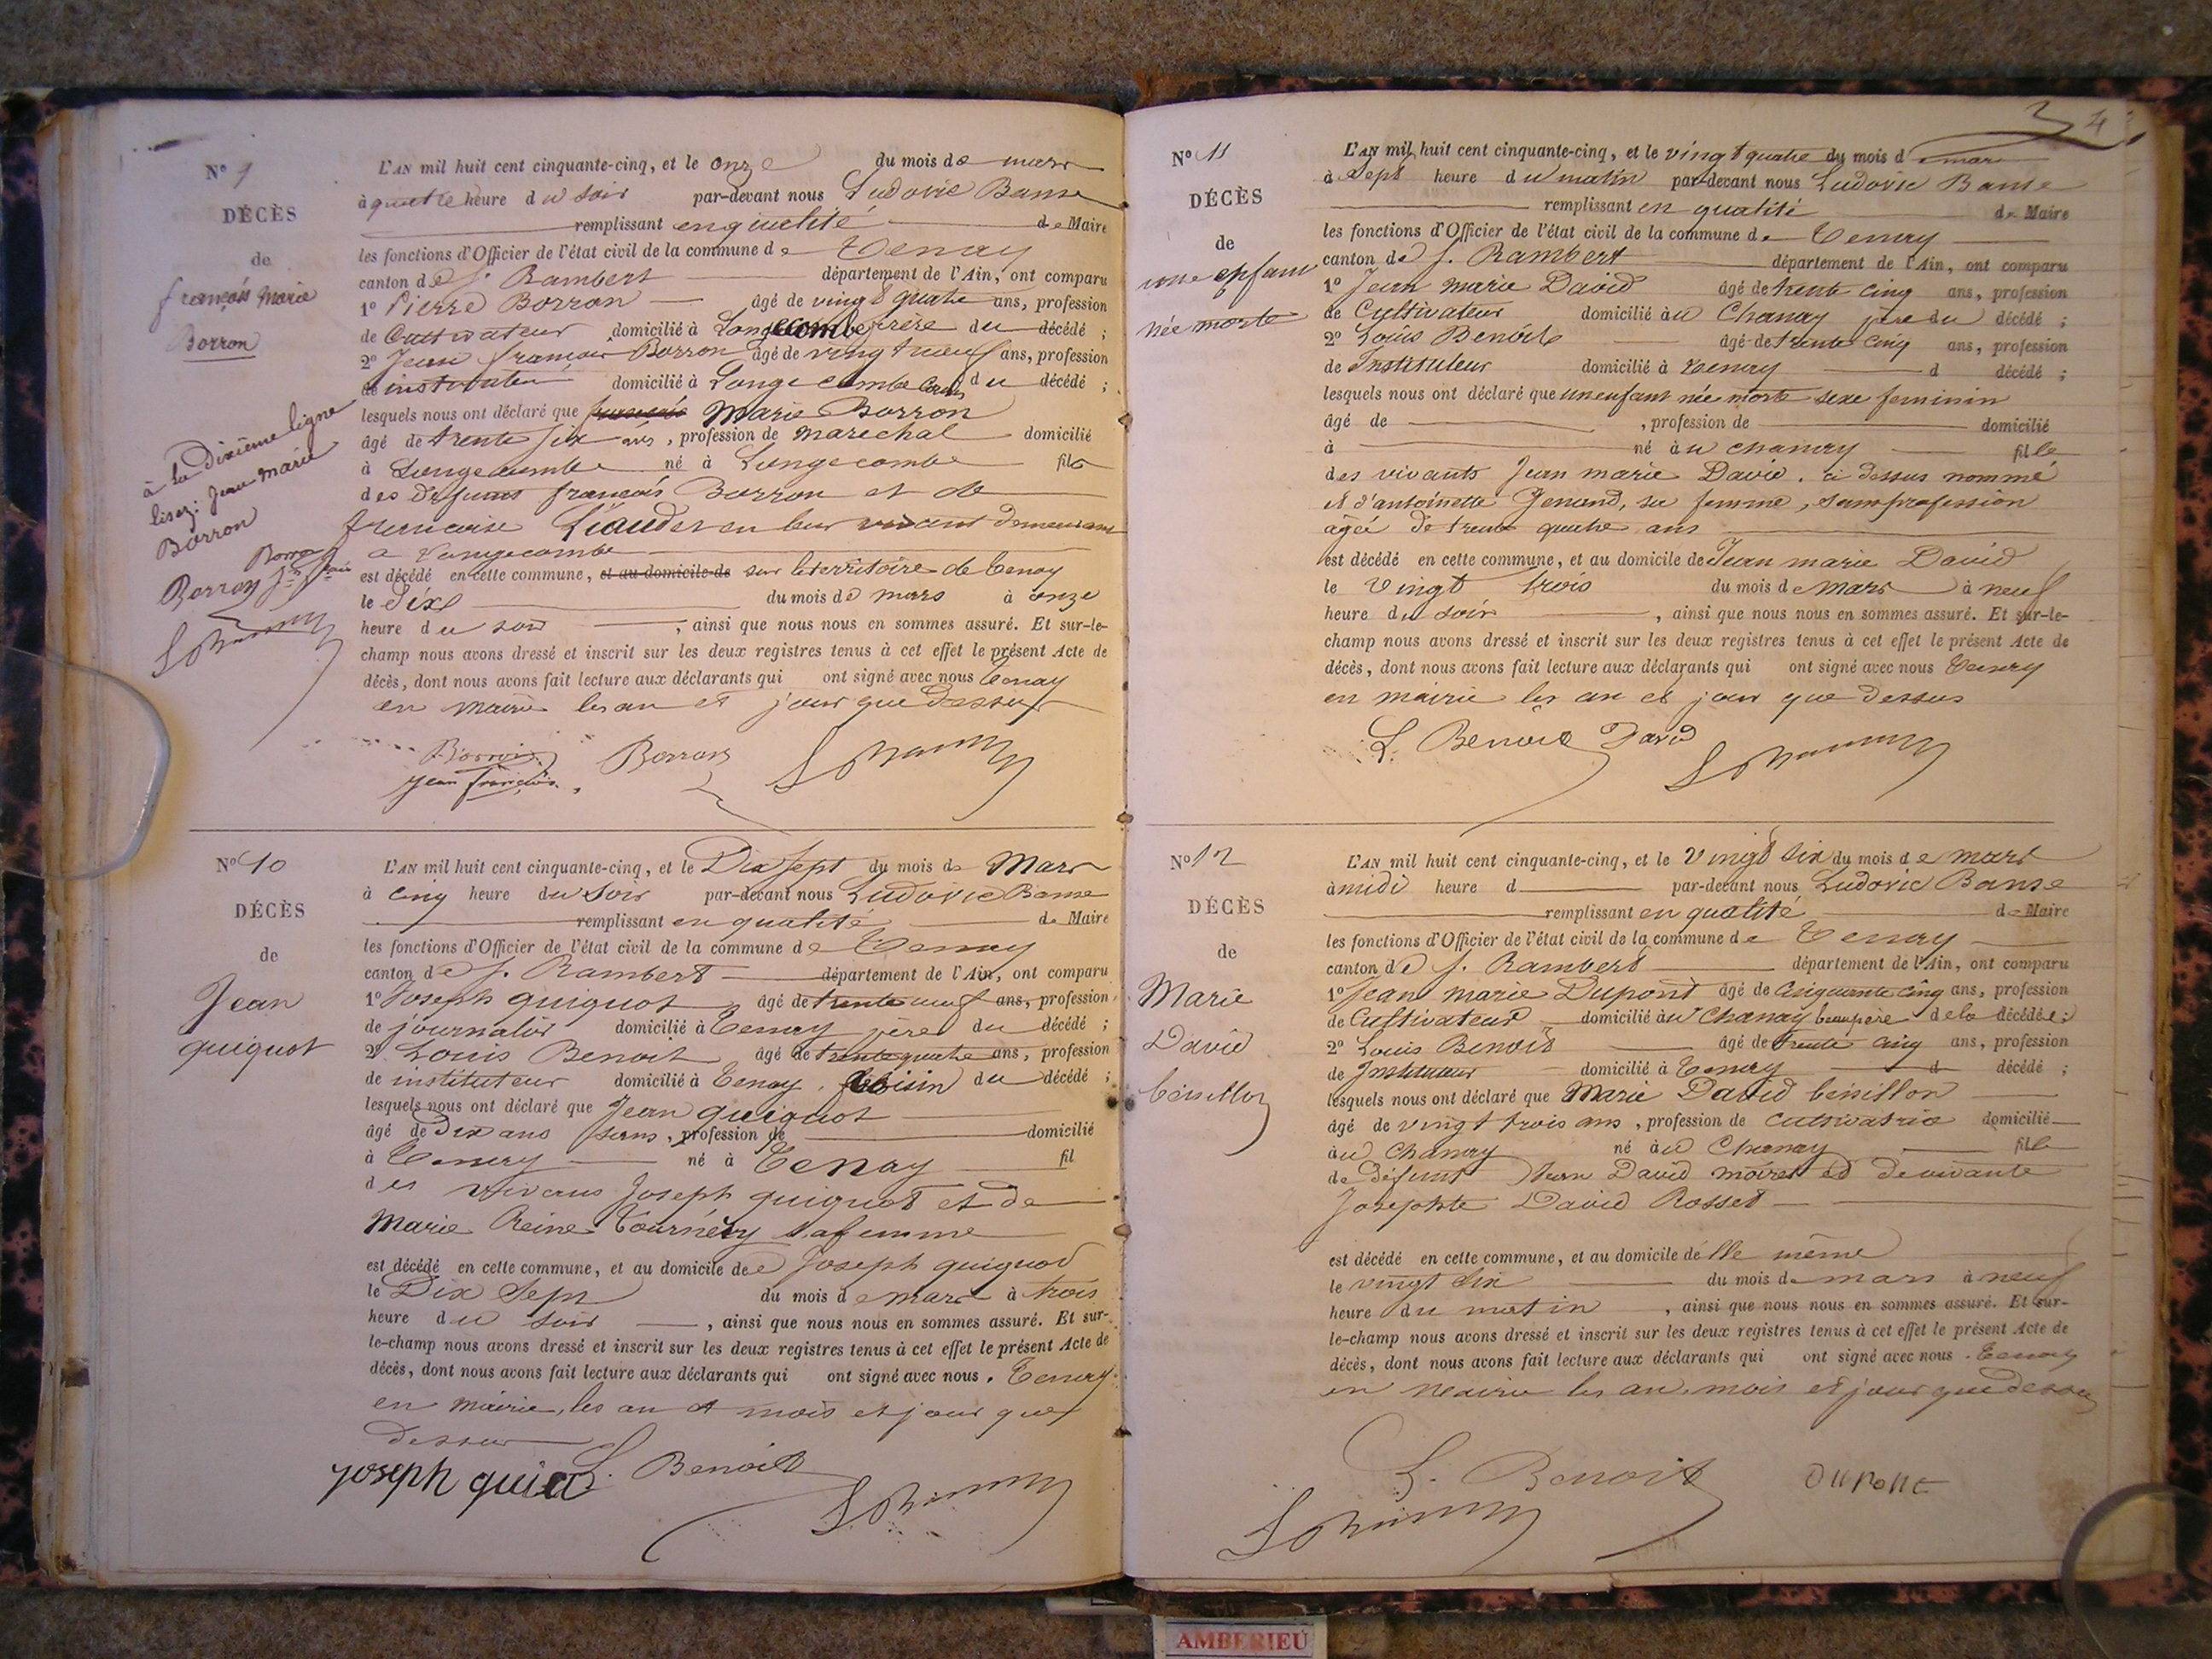 No 9
DÉCÈS
de
françois Marie
Borron
à la dixième ligne
lisez: Jean marie
Borron
Borron
Borron Jn
L'AN mil huit cent cinquante-cinq, et le onze du mois de mars
à quatre heure du soir par-devant nous Ludovic Banse
remplissant en qualité de Maire
les fonctions d'Officier de l'état civil de la commune de Tenay
canton de S. Rambert département de l'Ain, ont comparu
1o Pierre Borron âgé de vingt quatre ans, profession
de Cultivateur domicilié à Longecombe frère du décédé ;
2o Jean françois Borron âgé de vingt neuf ans, profession
de instituteur domicilié à Longecombe du décédé ;
lesquels nous ont déclaré que Marie Borron
âgé de trente six ans, profession de marechal domicilié
à Longecombe né à Longecombe fils
des défunts françois Borron et de
francoise Liauder en leur vivant demeurant
a Longecombe
est décédé en cette commune, et au domicile de sur le territoire de Tenay
le dix du mois de mars à onze
heure du soir, ainsi que nous nous en sommes assuré. Et sur-le-
champ nous avons dressé et inscrit sur les deux registres tenus à cet effet le présent Acte de
décès, dont nous avons fait lecture aux déclarants qui ont signé avec nous Tenay
en mairie les an et jour que dessus
Borron Borron
jean françois
No 10
DÉCÈS
de
Jean
quiquot
L'AN mil huit cent cinquante-cinq, et le Dix sept du mois de Mars
à cinq heure du soir par-devant nous Ludovic Banse
remplissant en qualité de Maire
les fonctions d'Officier de l'état civil de la commune de Tenay
canton de S. Rambert département de l'Ain, ont comparu
1o Joseph quiquot âgé de trente neuf ans, profession
de journalier domicilié à Tenay père du décédé ;
2o Louis Benoit âgé de trente quatre ans, profession
de instituteur domicilié à Tenay voisin du décédé ;
lesquels nous ont déclaré que Jean quiquot
âgé de Dix ans sans, profession de domicilié
à Tenay né à Tenay fil
des vivans Joseph quiquot et de
Marie Reine Tournéry sa femme
est décédé en cette commune, et au domicile de Joseph quiquot
le Dix Sept du mois de mars à trois
heure du soir, ainsi que nous nous en sommes assuré. Et sur-
le-champ nous avons dressé et inscrit sur les deux registres tenus à cet effet le présent Acte de
décès, dont nous avons fait lecture aux déclarants qui ont signé avec nous. Tenay
en mairie, les an et mois et jour que
dessus
joseph quiq L. Benoit
4
No 11
DÉCÈS
de
une enfant
née morte
L'AN mil huit cent cinquante-cinq, et le vingt quatre du mois de mars
à Sept heure du matin par-devant nous Ludovic Banse
remplissant en qualité de Maire
les fonctions d'Officier de l'état civil de la commune de Tenay
canton de S. Rambert département de l'Ain, ont comparu
1o Jean marie David âgé de trente cinq ans, profession
de Cultivateur domicilié au Chanay père du décédé ;
2o Louis Benoit âgé de trente cinq ans, profession
de Instituteur domicilié à Tenay d décédé ;
lesquels nous ont déclaré que un enfant née morte sexe feminin
âgé de , profession de domicilié
à né au chanay fille
des vivants Jean marie David. ci dessus nommé
et d'antoinette Genand, sa femme, sans profession
agée de trente quatre ans
est décédé en cette commune, et au domicile de Jean marie David
le Vingt trois du mois de Mars à neuf
heure du soir, ainsi que nous nous en sommes assuré. Et sur-le-
champ nous avons dressé et inscrit sur les deux registres tenus à cet effet le présent Acte de
décès, dont nous avons fait lecture aux déclarants qui ont signé avec nous Tenay
en mairie les an et jour que dessus
L. Benoit David
No 12
DÉCÈS
de
Marie
David
L'AN mil huit cent cinquante-cinq, et le Vingt six du mois de mars
à midi heure d par-devant nous Ludovic Banse
remplissant en qualité de Maire
les fonctions d'Officier de l'état civil de la commune de Tenay
canton de S. Rambert département de l'Ain, ont comparu
1o Jean Marie Dupont âgé de Cinquante cinq ans, profession
de Cultivateur domicilié au Chanay beaupère de la décédée ;
2o Louis Benoit âgé de trente cinq ans, profession
de Instituteur domicilié à Tenay d décédé ;
lesquels nous ont déclaré que Marie David
âgé de vingt trois ans, profession de Cultivatrice domicilié
au Chanay né au Chanay fille
de défunt Jean David et de vivante
Josephte David Rosset
est décédé en cette commune, et au domicile delle même
le vingt Six du mois de mars à neuf
heure du matin, ainsi que nous nous en sommes assuré. Et sur-
le-champ nous avons dressé et inscrit sur les deux registres tenus à cet effet le présent Acte de
décès, dont nous avons fait lecture aux déclarants qui ont signé avec nous. Tenay
en Mairie les an, mois et jour que dessus
L. Benoit Dupont
AMBERIEU